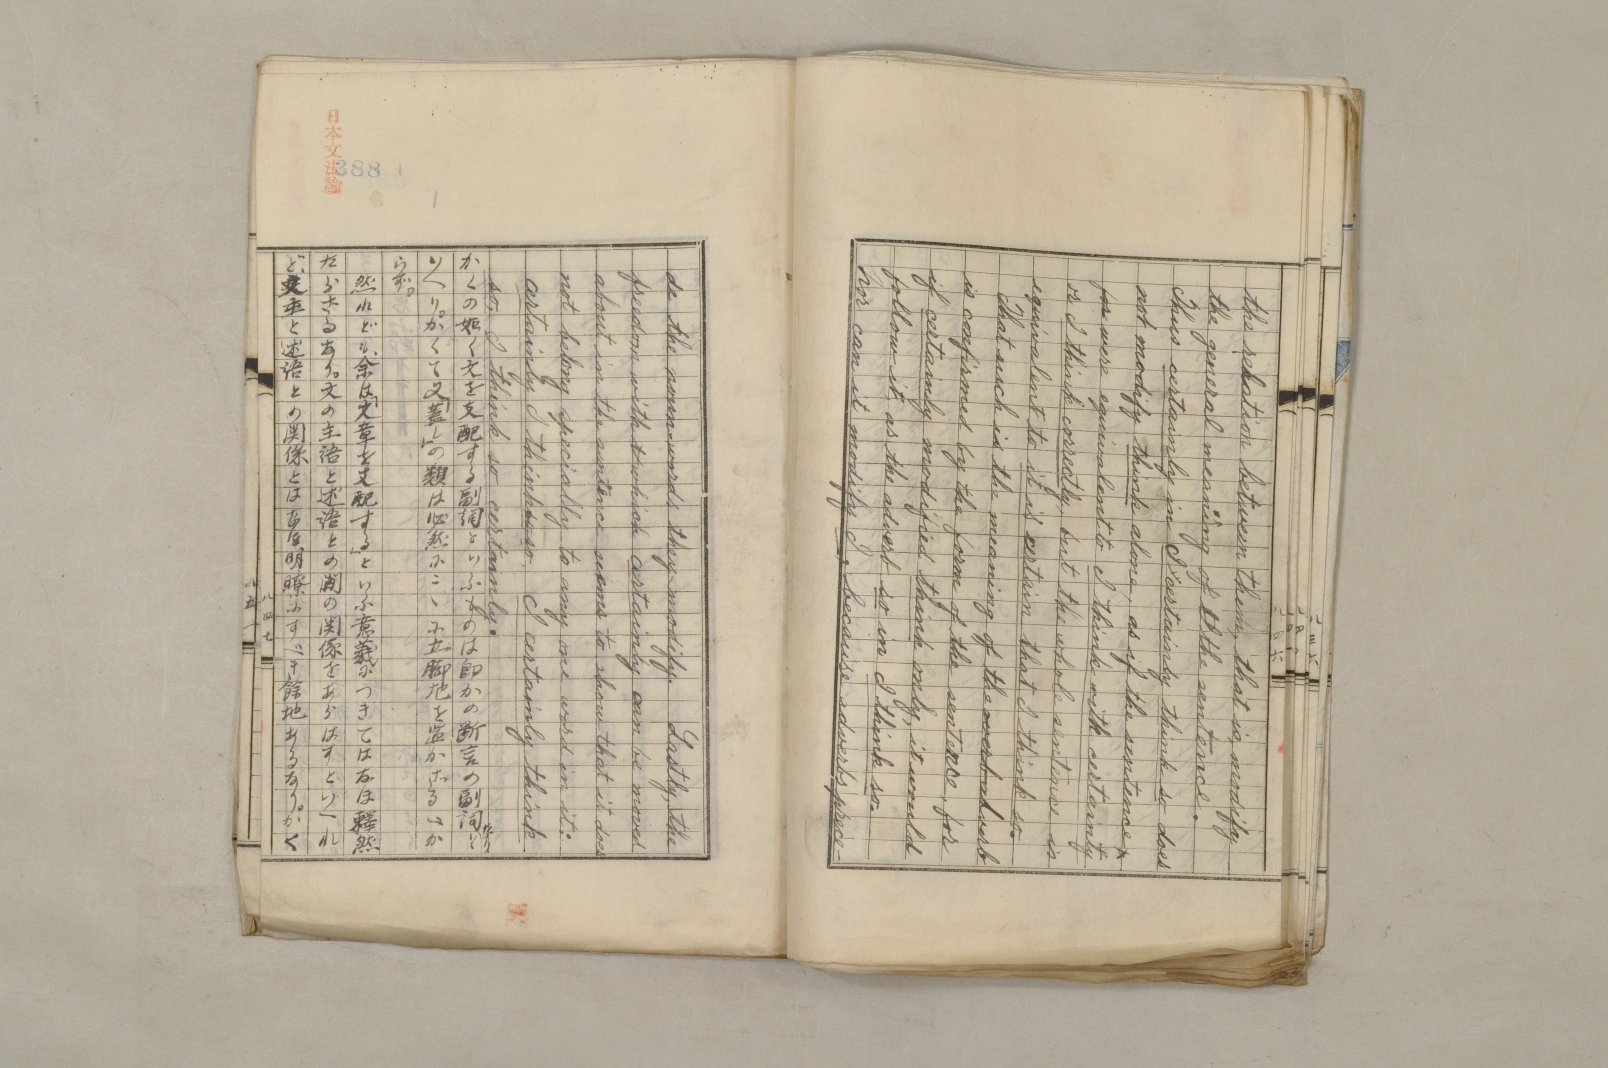 the relation between them, that is, modify
the general meaning of the sentence.
Thus certainly in I certainly think so does
not modify think alone, as if the sentence
were equivalent to I think with certainty
or I think correctly, but the whole sentence is
equivalent to it is certain that I think so.
That such is the meaning of the adverb
is confirmed by the form of the sentence, for
if certainly modified think only, it would
follow it as the adverb so in I think so.
Nor can it modify I, because adverbs prece-
de the noun-words they modify. Lastly, the
freedom with which certainly can be moved
about in the sentence seems to show that it does
not belong specially to any one word in it:
certainly I think so, I certainly think
so, I think so certainly.
かくの如く文を支配する副詞といふものは即かの断言の副詞と
いへり。かくて又「蓋し」の類は必然にここに立脚地を置かざるべか
らず。
然れども、余は「文章を支配する」といふ意義につきてはなほ釋然
たらざるあり。文の主語と述語との間の関係をあらはすといへれ
ど、主と述語との関係とはなほ明瞭にすべき餘地あるなり。かく
日本文法論
388
八四七
八四六